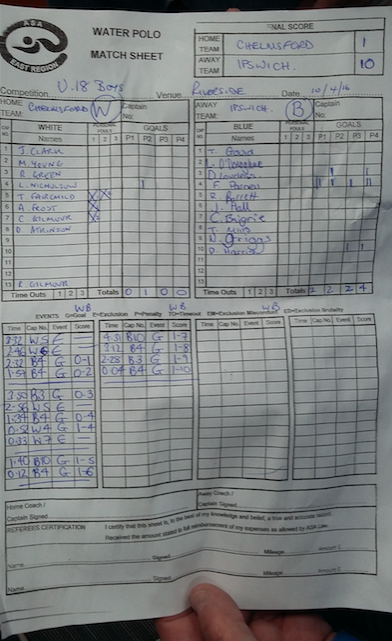 ASA
EAST REGION
WATER POLO
MATCH SHEET
FINAL SCORE
HOME TEAM CHELMSFORD 1
AWAY TEAM IPSWICH. 10
Competition U.18 Boys Venue RIVERSIDE Date 10/4/16
HOME TEAM: CHELMSFORD W Captain No:
AWAY TEAM: IPSWICH. B Captain No:
CAP NO. WHITE Names PERSONAL FOULS 1 2 3 GOALS P1 P2 P3 P4
1 J. CLARK
2 M. YOUNG
3 R. GREEN
4 L. NICHOLSON 1
5 T. FAIRCHILD X X
6 A. FROST X
7 C. GILMOUR X
8 D. ATKINSON
9
10
11
12
13 R. GILMOUR
Time Outs 1 2 3 Totals 0 1 0 0
CAP NO. BLUE Names PERSONAL FOULS 1 2 3 GOALS P1 P2 P3 P4
1 T.
2
3
4 F.
5 R.
6 J. Hall
7 C.
8 T.
9 N. Griggs
10 D. Harris
11
12
13
Time Outs 1 2 3 Totals 2 2 2 4
WB WB WB
EVENTS G=Goal E=Exclusion P=Penalty TO=Timeout EM=Exclusion Misconduct EB=Exclusion Brutality
Time Cap No. Event Score Time Cap No. Event Score Time Cap No. Event Score Time Cap No. Event Score
3.32 W5 E — 4.51 B10 G 1-7
2.46 W6 E — 3.12 B4 G 1-8
2.32 B4 G 0-1 2.28 B3 G 1-9
1.57 B4 G 0-2 0.04 B4 G 1-10
3.50 B3 G 0-3
2.56 W5 E —
1.34 B4 G 0-4
0.52 W4 G 1-4
0.33 W7 E —
1.40 B10 G 1-5
0.12 B4 G 1-6
Home Coach / Captain Signed
Away Coach / Captain Signed
REFEREES CERTIFICATION I certify that this sheet is, to the best of my knowledge and belief, a true and accurate record.
Received the amount stated in full reimbursement of my expenses as allowed by ASA Law.
Name Signed Mileage Amount £
Name Signed Mileage Amount £